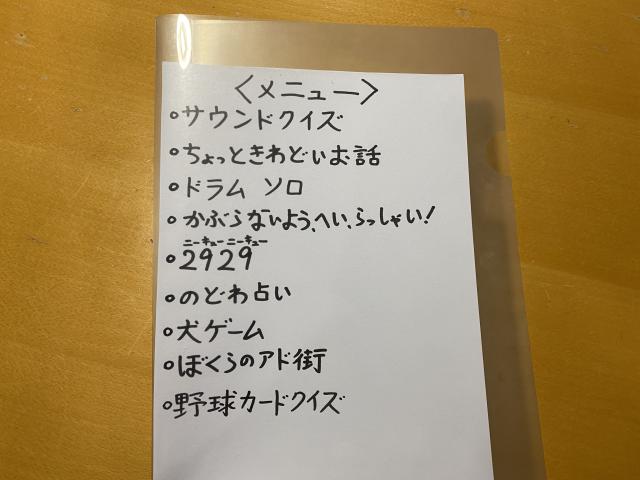 <メニュー>
•サウンドクイズ
•ちょっときわどいお話
•ドラム ソロ
•かぶらないよう、へい、らっしゃい!
ニーキューニーキュー
•2929
•のどわ占い
•犬ゲーム
•ぼくらのアド街
•野球カードクイズ